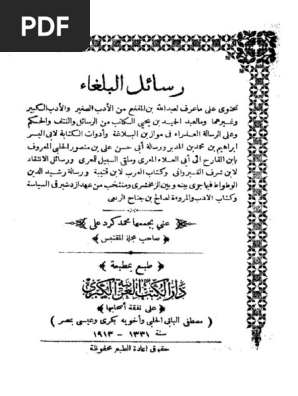 PDF
رسائل البلغاء
تحتوي على ماعرف لعبدالله بن المقفع من الأدب الصغير والأدب الكبير
وغيرهما ومالعبد الحميد بن يحيى الكاتب من الرسائل والنتف والحكم
وعلى الرسالة العذراء في موازين البلاغة وأدوات الكتابة لابي اليسر
ابراهيم بن محمد بن المدبر ورسالة أبي حسن علي بن منصور الحلبي المعروف
بابن القارح الى أبي العلاء المعري وملقى السبيل للمعري ورسائل الانتقاد
لابن شرف القيرواني وكتاب العرب لابن قتيبة ورسالة رشيد الدين
الوطواط فيما جرى بينه وبين الزمخشري ومنتخب من عهد ازدشير في السياسة
وكتاب الادب والمروءة لصالح بن جناح الربعي
عني بجمعها محمد كرد علي
صاحب مجلة المقتبس
طبع بمطبعة
دار الكتب العربية الكبرى
على نفقة أصحابها
( مصطفى البابي الحلبي وأخويه بكري وعيسى بمصر )
سنة ١٣٣١ – ١٩١٣
حقوق اعادة الطبع محفوظة